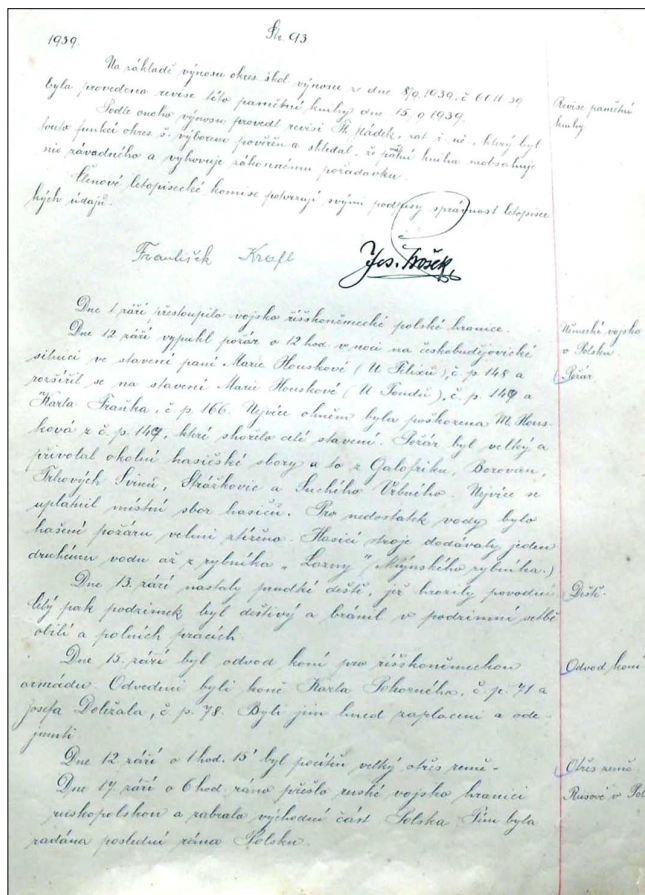 1939.
Str. 93.
Na základě výnosu okres. škol. výnosu ze dne 8/9. 1939, č. 6011-39
byla provedena revise této pamětní knihy dne 15. 9. 1939.
Podle onoho výnosu provedl revisi Th. Hádek, který byl
touto funkcí okres. š. výborem pověřen a shledal, že kniha neobsahuje
nic závadného a vyhovuje zákonnému požadavku.
Členové letopisecké komise potvrzují svými podpisy správnost letopisec
kých údajů.
Revise pamětní
knihy
František Krafl
Jos. Trošek
Dne 1. září přestoupilo vojsko říšskoněmecké polské hranice.
Německé vojsko
v Polsku
Dne 12. září vypukl požár o 12 hod. v noci na českobudějovické
silnici ve stavení paní Marie Houskové (U Filiců), č. p. 148 a
Požár
rozšířil se na stavení Marie Houskové (U Tondů), č. p. 149 a
Karla Fraňka, č. p. 166. Nejvíce ohněm byla poškozena M. Hous-
ková z č. p. 149, které shořelo celé stavení. Požár byl velký a
přivolal okolní hasičské sbory a to z Borovan,
Trhových Svinů, Strážkovic a Suchého Vrbného. Nejvíce se
uplatnil místní sbor hasičů. Pro nedostatek vody bylo
hašení požáru velmi ztíženo. Hasicí stroje dodávaly jeden
druhému vodu až z rybníka „ (Mlýnského rybníka.)
Dne 13. září nastaly prudké deště, jež hrozily povodní
Deště.
letý pak podzimek byl deštivý a bránil v podzimní setbě
obilí a polních pracích.
Dne 15. září byl odvod koní pro říšskoněmeckou
Odvod koní
armádu. Odvedeni byli koně Karla Pokorného, č. p. 71 a
Josefa Doležala, č. p. 78. Byli jim hned zaplaceni a ode-
jmuti.
Dne 12. září o 1 hod. 15' byl pocítěn velký otřes země.
Otřes země.
Dne 17. září o 6 hod. ráno přešlo ruské vojsko hranici
Rusové v Pol
ruskopolskou a zabralo východní část Polska. Tím byla
zadána poslední rána Polsku.